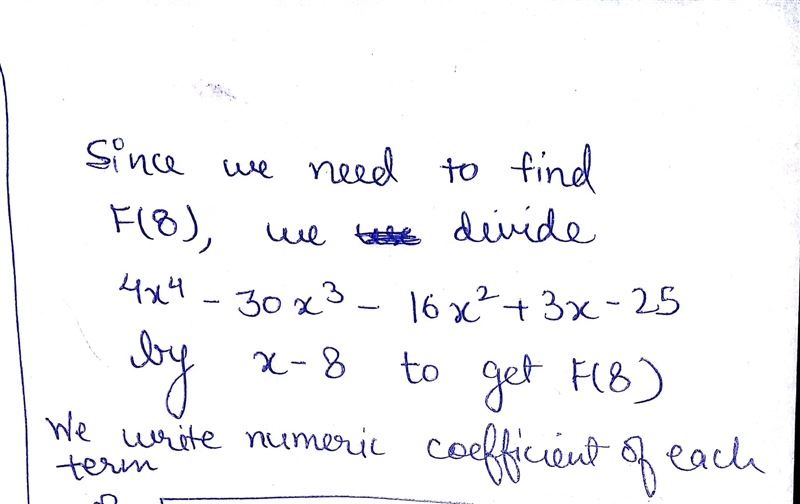 Since we need to find
F(8), we divide
4x⁴ - 30x³ - 16x² + 3x - 25
by x - 8 to get F(8)
We write numeric coefficient of each
term